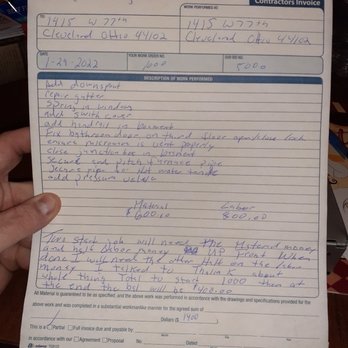 Contractors Invoice
WORK PERFORMED AT:
TO:
1415 W 77th
1415 W 77th
Cleveland Ohio 44102
Cleveland Ohio 44102
DATE
YOUR WORK ORDER NO.
OUR BID NO.
1-29-2022
DESCRIPTION OF WORK PERFORMED
Add downspout
repair gutter
Spring in
add switch cover
add in
Fix bathroom door on third floor open/close
ensure is vent properly
close junction box in
Secure and
Secure pipe to Hot water
add pressure
Material
Labor
$600.00
800.00
To start job will need the Material money
and half Labor money UP Front When
done I will need the other Half on the Labor
money I talked to about
whole thing Total to start 1000 then at
the end the bill will be $400.00
All Material is guaranteed to be as specified, and the above work was performed in accordance with the drawings and specifications provided for the
above work and was completed in a substantial workmanlike manner for the agreed sum of
Dollars ($ 1400
This is a Partial Full invoice due and payable by:
in accordance with our Agreement Proposal No. Dated